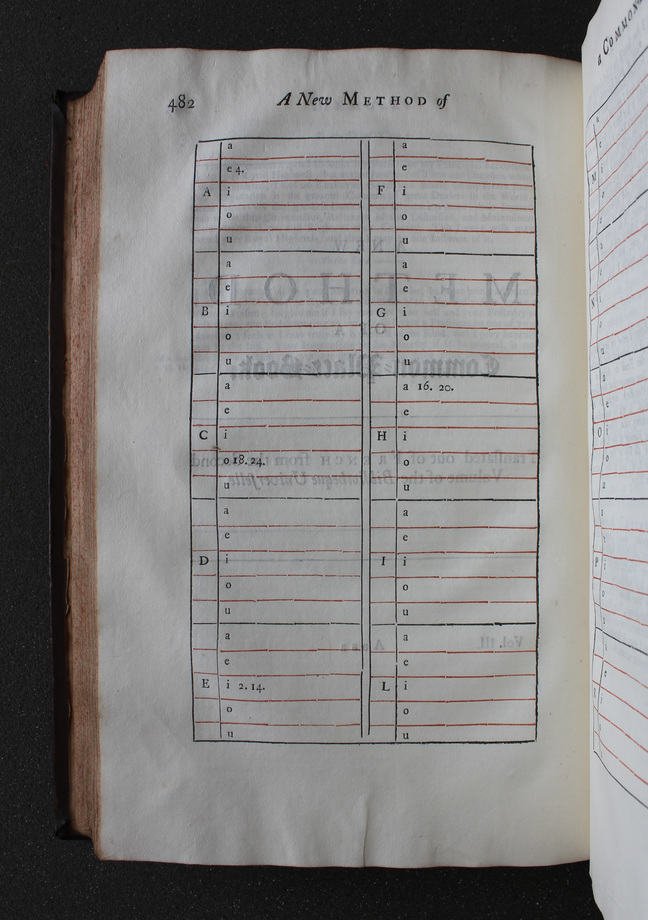 482
A New METHOD of
a
e 4.
A i
o
u
a
e
B i
o
u
a
e
C i
o 18. 24.
u
a
e
D i
o
u
a
e
E i 2. 14.
o
u
a
e
F i
o
u
a
e
G i
o
u
a 16. 20.
e
H i
o
u
a
e
I i
o
u
a
e
L i
o
u
a COMMON